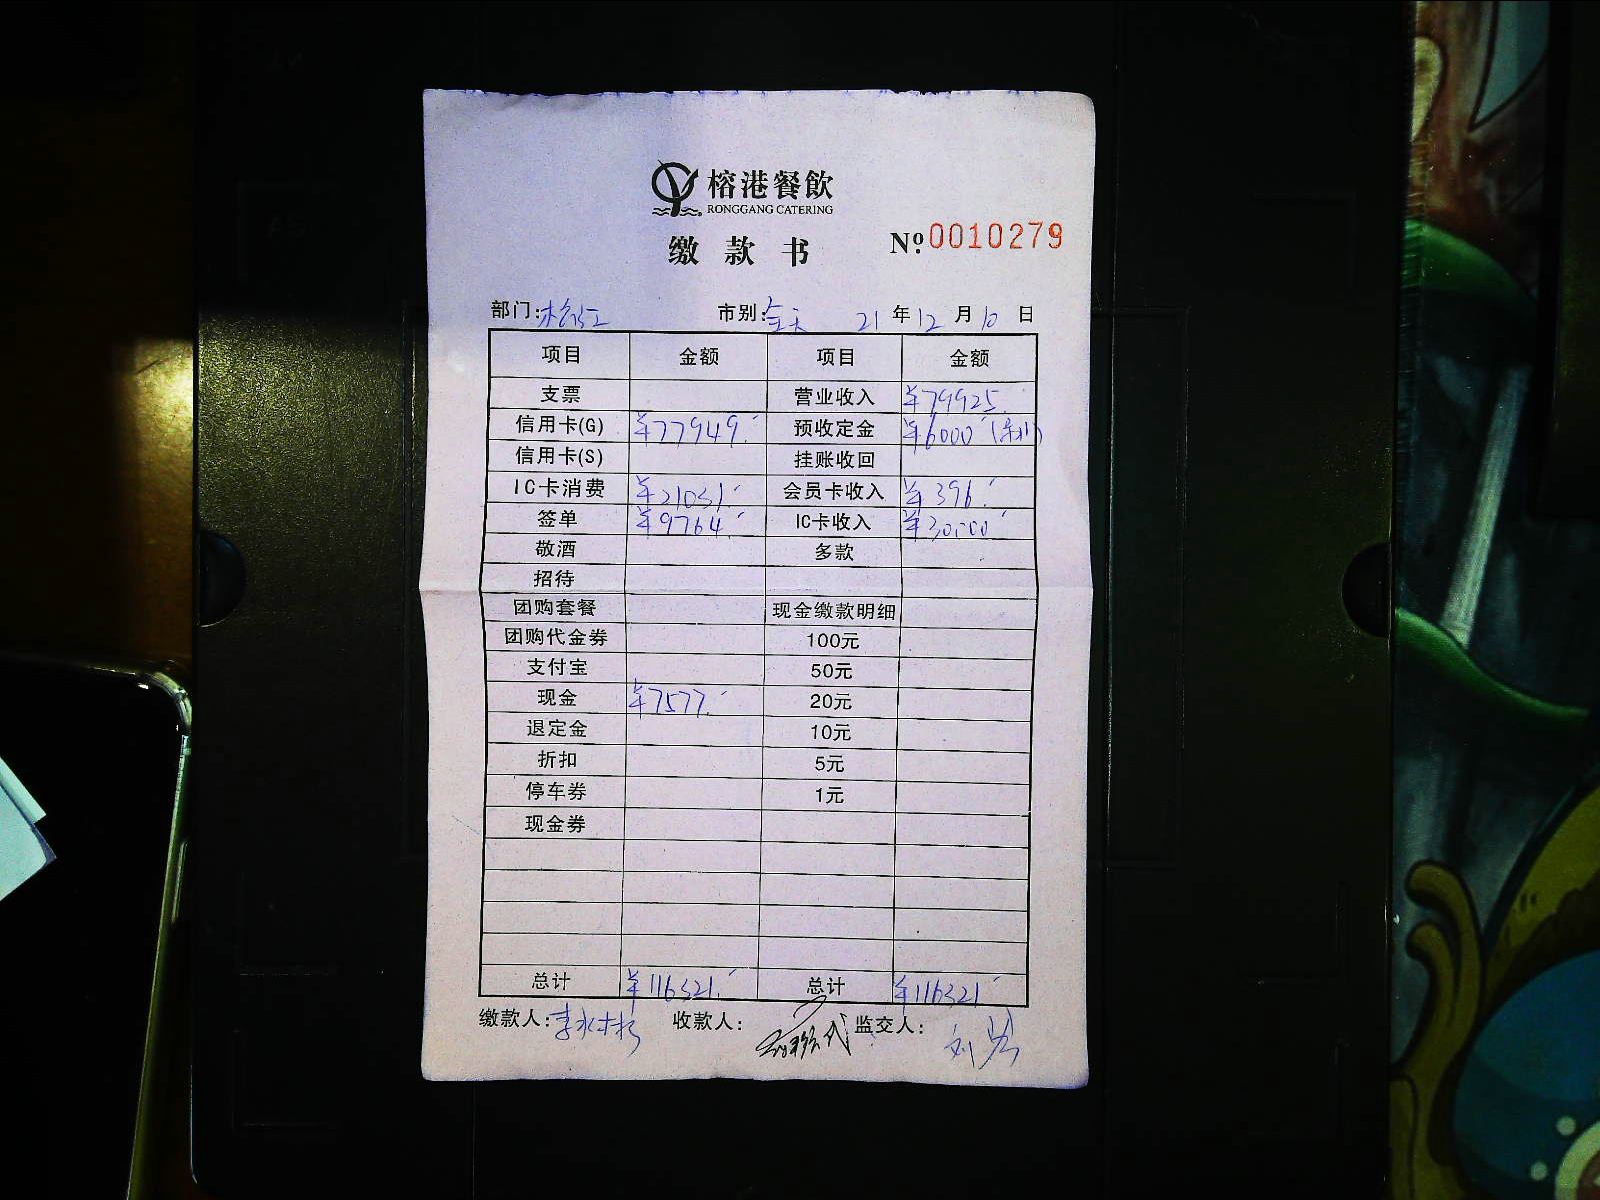 榕港餐飲
RONGGANG CATERING
缴款书 Nº 0010279
部门: 榕江 市别: 全天 21年12月10日
项目 金额 项目 金额
支票 营业收入 ¥79925.-
信用卡(G) ¥77949.- 预收定金 ¥6000.-
信用卡(S) 挂账收回
IC卡消费 ¥21031.- 会员卡收入 ¥396.-
签单 ¥9764.- IC卡收入 ¥30000.-
敬酒 多款
招待
团购套餐 现金缴款明细
团购代金券 100元
支付宝 50元
现金 ¥7577.- 20元
退定金 10元
折扣 5元
停车券 1元
现金券
总计 ¥116321.- 总计 ¥116321.-
缴款人: 收款人: 监交人: